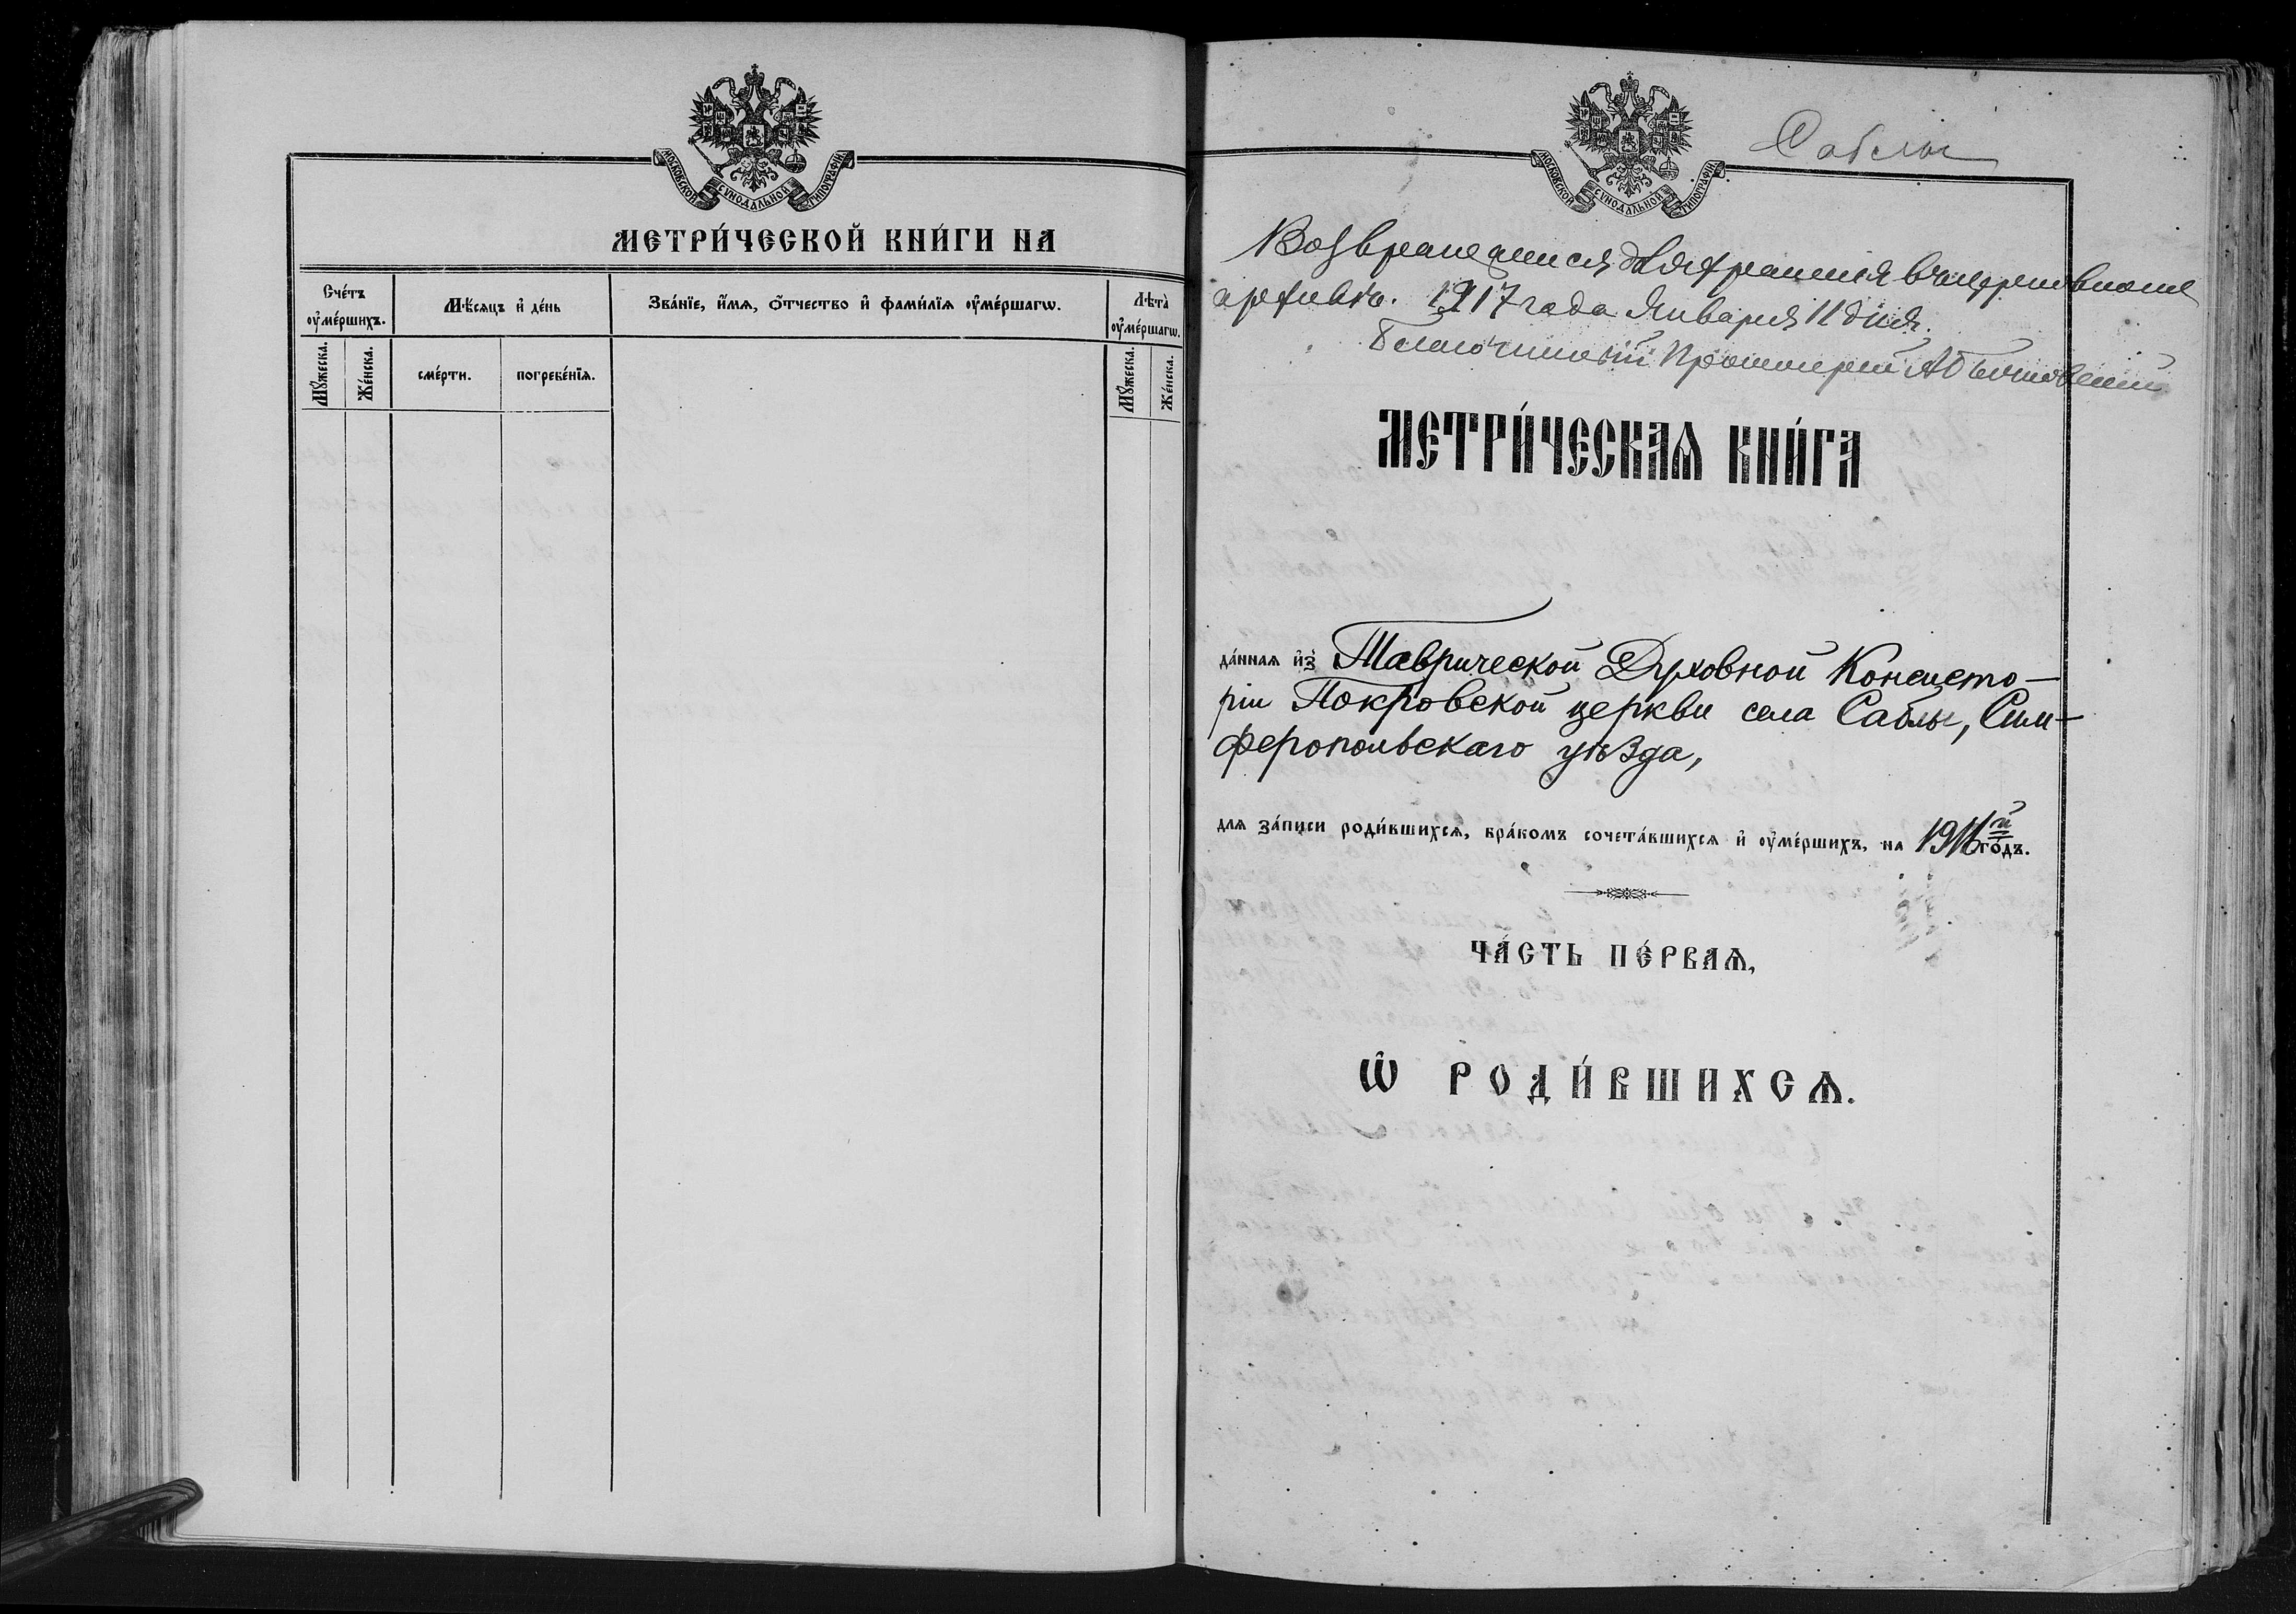 МОСКОВСКОЙ СѴНОДАЛЬНОЙ ТИПОГРАФІИ
МЕТРИ́ЧЕСКОЙ КНИ́ГИ НА
Сче́тъ ᲂу҆ме́ршихъ.
Мѣ́сяцъ и҆ де́нь
Зва́нїе, и҆́мѧ, ѻ҆́тчество и҆ фами́лїѧ ᲂу҆ме́ршагѡ.
Лѣта̀ ᲂу҆ме́ршагѡ.
Мꙋ́жеска.
Же́нска.
сме́рти.
погребе́нїѧ.
Мꙋ́жеска.
Же́нска.
МОСКОВСКОЙ СѴНОДАЛЬНОЙ ТИПОГРАФІИ
Саблы
Возвращается для храненія в церковномъ
архивѣ. 1917 года Января 11 дня.
Благочинный Протоіерей
МЕТРИ́ЧЕСКАѦ КНИ́ГА
да́ннаѧ и҆з̾ Таврической Духовной Консисто-
ріи Покровской церкви села Саблы, Сим-
феропольскаго уѣзда,
длѧ за́писи роди́вшихсѧ, бра́комъ сочета́вшихсѧ и҆ ᲂу҆ме́ршихъ, на 1916й го́дъ.
ЧА́СТЬ ПЕ́РВАѦ,
Ѡ҆ РОДИ́ВШИХСѦ.